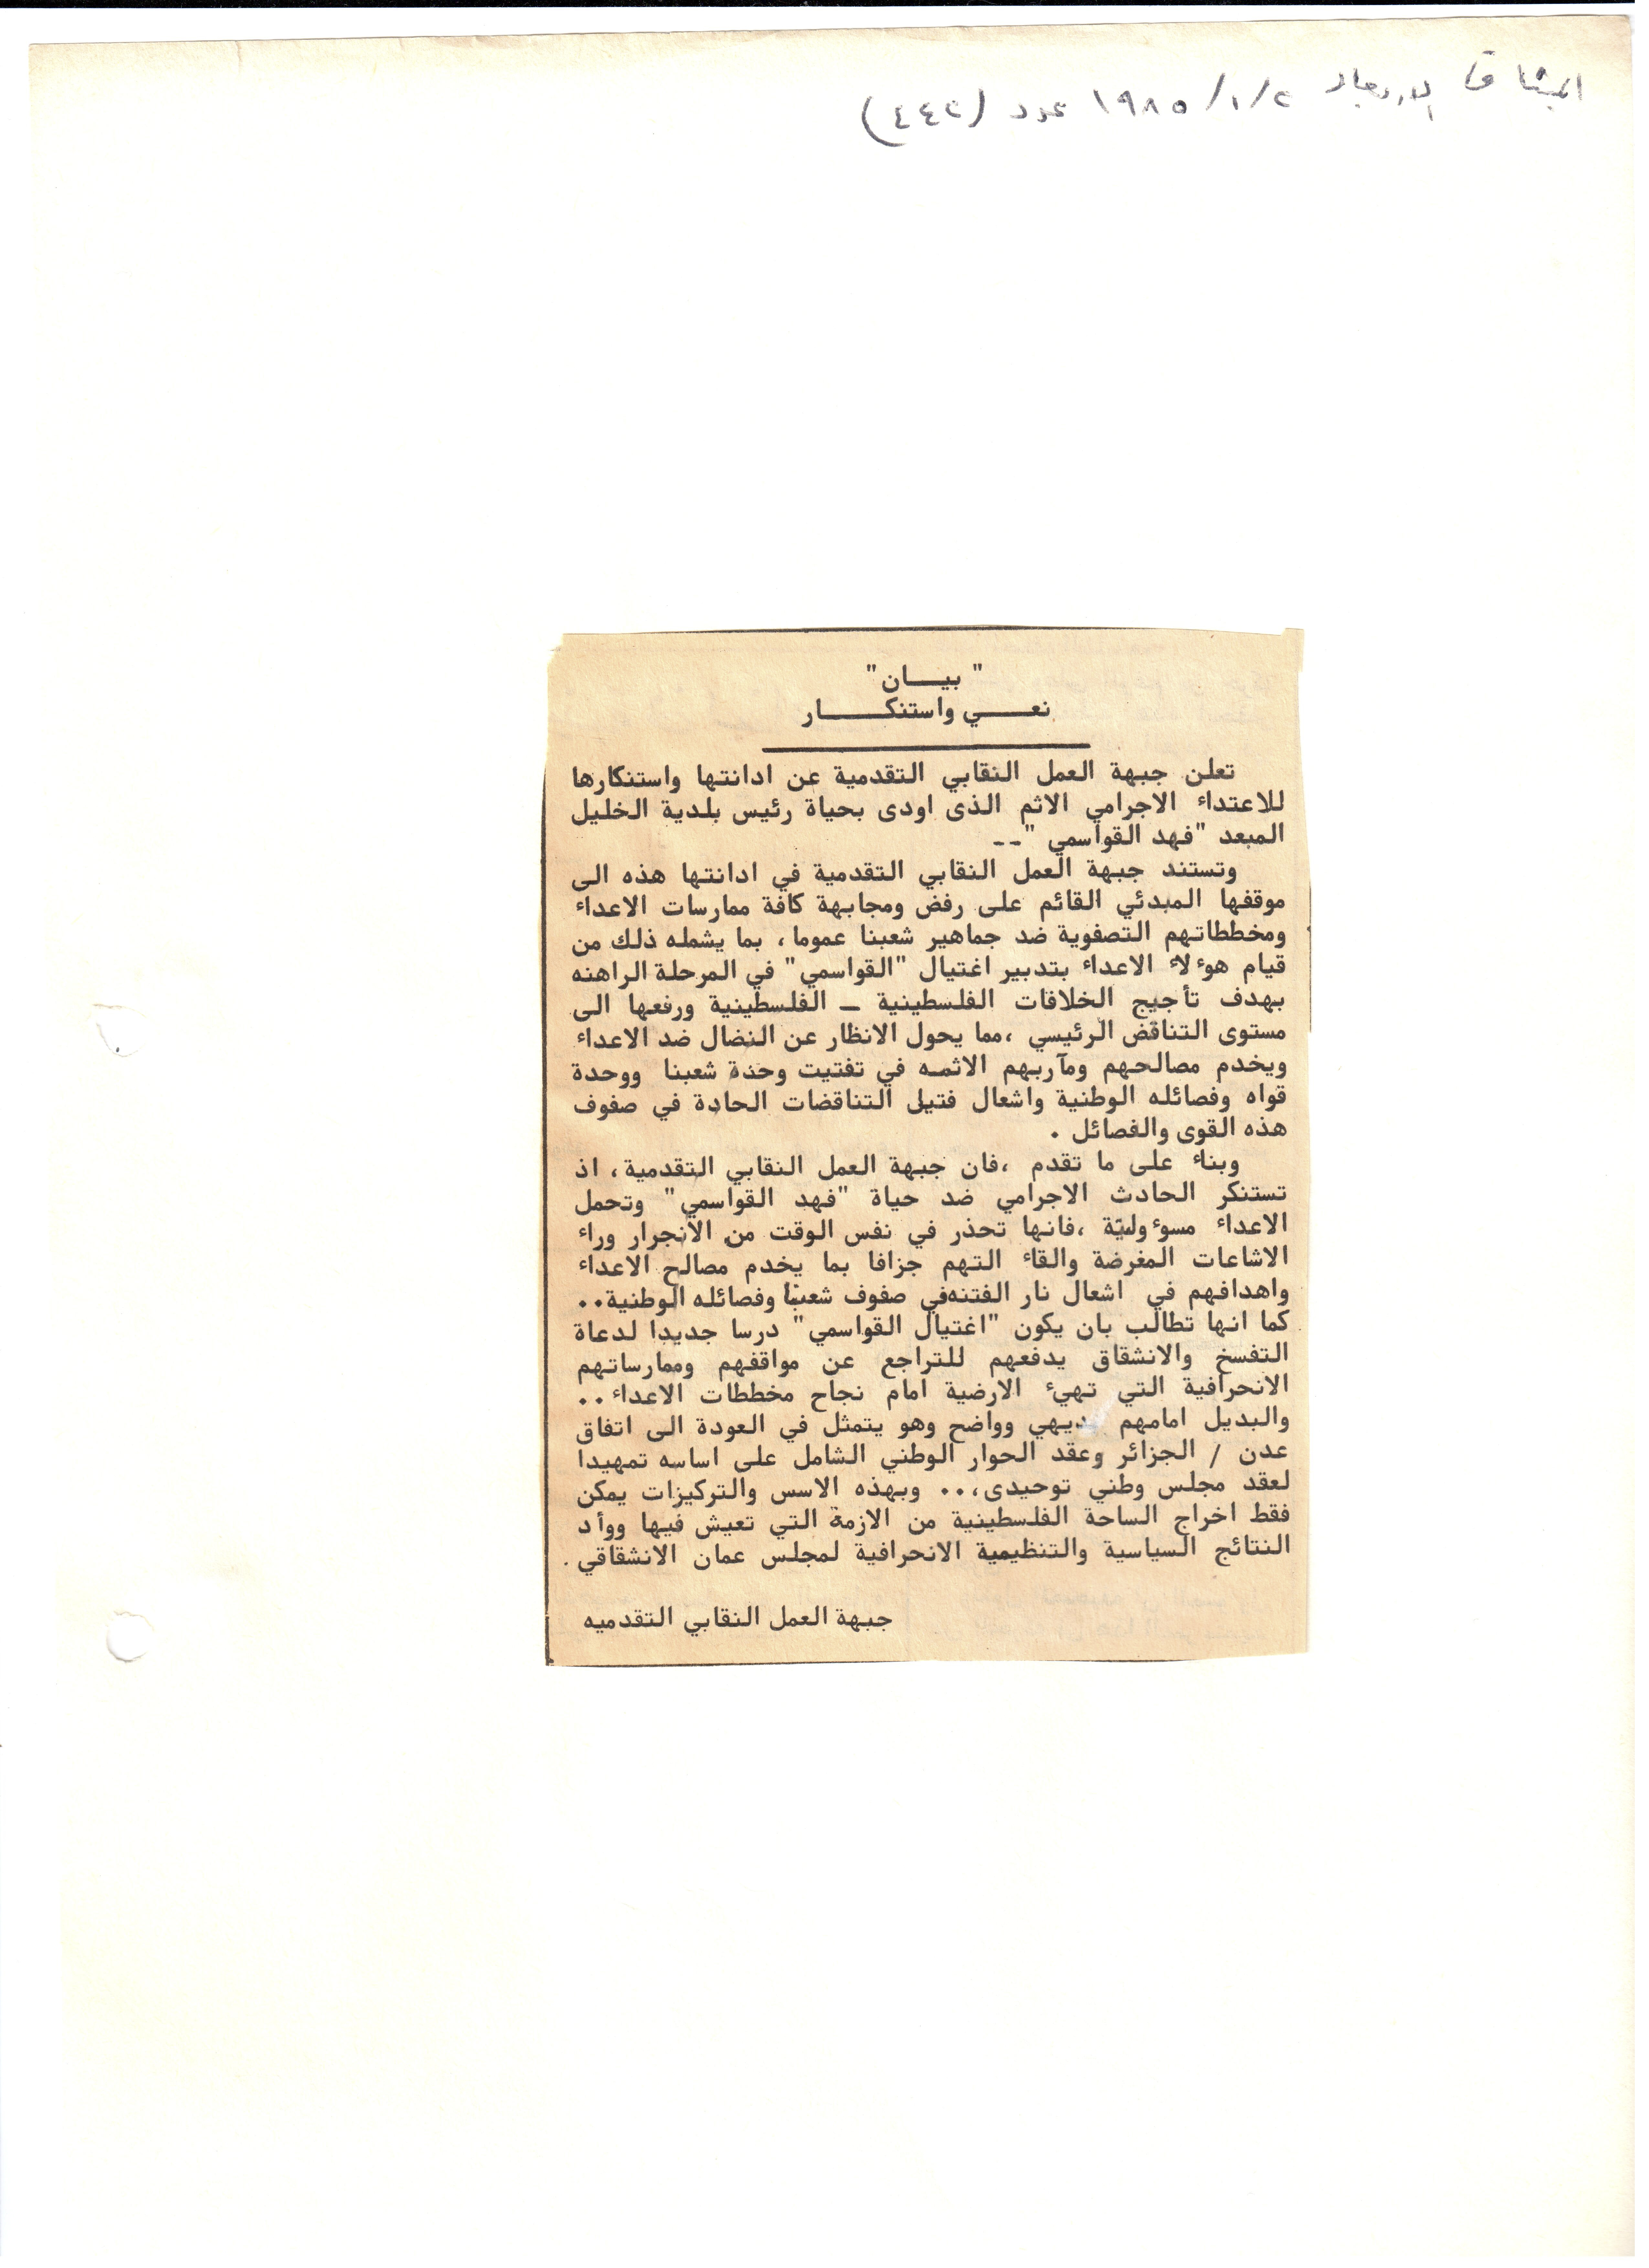 الميثاق الاربعاء ١٩٨٥/١/٢ عدد (٤٤٢)
" بيـــان"
نعـــي واستنكـــــار
تعلن جبهة العمل النقابي التقدمية عن ادانتها واستنكارها
للاعتداء الاجرامي الاثم الذى اودى بحياة رئيس بلدية الخليل
المبعد "فهد القواسمي "--
وتستند جبهة العمل النقابي التقدمية في ادانتها هذه الى
موقفها المبدئي القائم على رفض ومجابهة كافة ممارسات الاعداء
ومخططاتهم التصفوية ضد جماهير شعبنا عموما، بما يشمله ذلك من
قيام هوءلاء الاعداء بتدبير اغتيال "القواسمي" في المرحلة الراهنه
بهدف تأجيج الخلافات الفلسطينية ـ الفلسطينية ورفعها الى
مستوى التناقض الرئيسي ،مما يحول الانظار عن النضال ضد الاعداء
ويخدم مصالحهم ومآربهم الاثمه في تفتيت وحدة شعبنا ووحدة
قواه وفصائله الوطنية واشعال فتيل التناقضات الحادة في صفوف
هذه القوى والفصائل .
وبناء على ما تقدم ،فان جبهة العمل النقابي التقدمية، اذ
تستنكر الحادث الاجرامي ضد حياة "فهد القواسمي" وتحمل
الاعداء مسوءوليّة ،فانها تحذر في نفس الوقت من الانجرار وراء
الاشاعات المغرضة والقاء التهم جزافا بما يخدم مصالح الاعداء
واهدافهم في اشعال نار الفتنهفي صفوف شعبنا وفصائله الوطنية..
كما انها تطالب بان يكون "اغتيال القواسمي" درسا جديدا لدعاة
التفسخ والانشقاق يدفعهم للتراجع عن مواقفهم وممارساتهم
الانحرافية التي تهيء الارضية امام نجاح مخططات الاعداء..
والبديل امامهم بديهي وواضح وهو يتمثل في العودة الى اتفاق
عدن / الجزائر وعقد الحوار الوطني الشامل على اساسه تمهيدا
لعقد مجلس وطني توحيدى،.. وبهذه الاسس والتركيزات يمكن
فقط اخراج الساحة الفلسطينية من الازمة التي تعيش فيها ووأد
النتائج السياسية والتنظيمية الانحرافية لمجلس عمان الانشقاقي .
جبهة العمل النقابي التقدميه